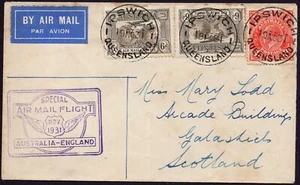 BY AIR MAIL
PAR AVION
IPSWICH
QUEENSLAND
IPSWICH
QUEENSLAND
IPSWICH
QUEENSLAND
6d
SPECIAL
AIR MAIL FLIGHT
NOV.
1931
AUSTRALIA-ENGLAND
Miss Mary Todd
Arcade Buildings
Galashiels
Scotland